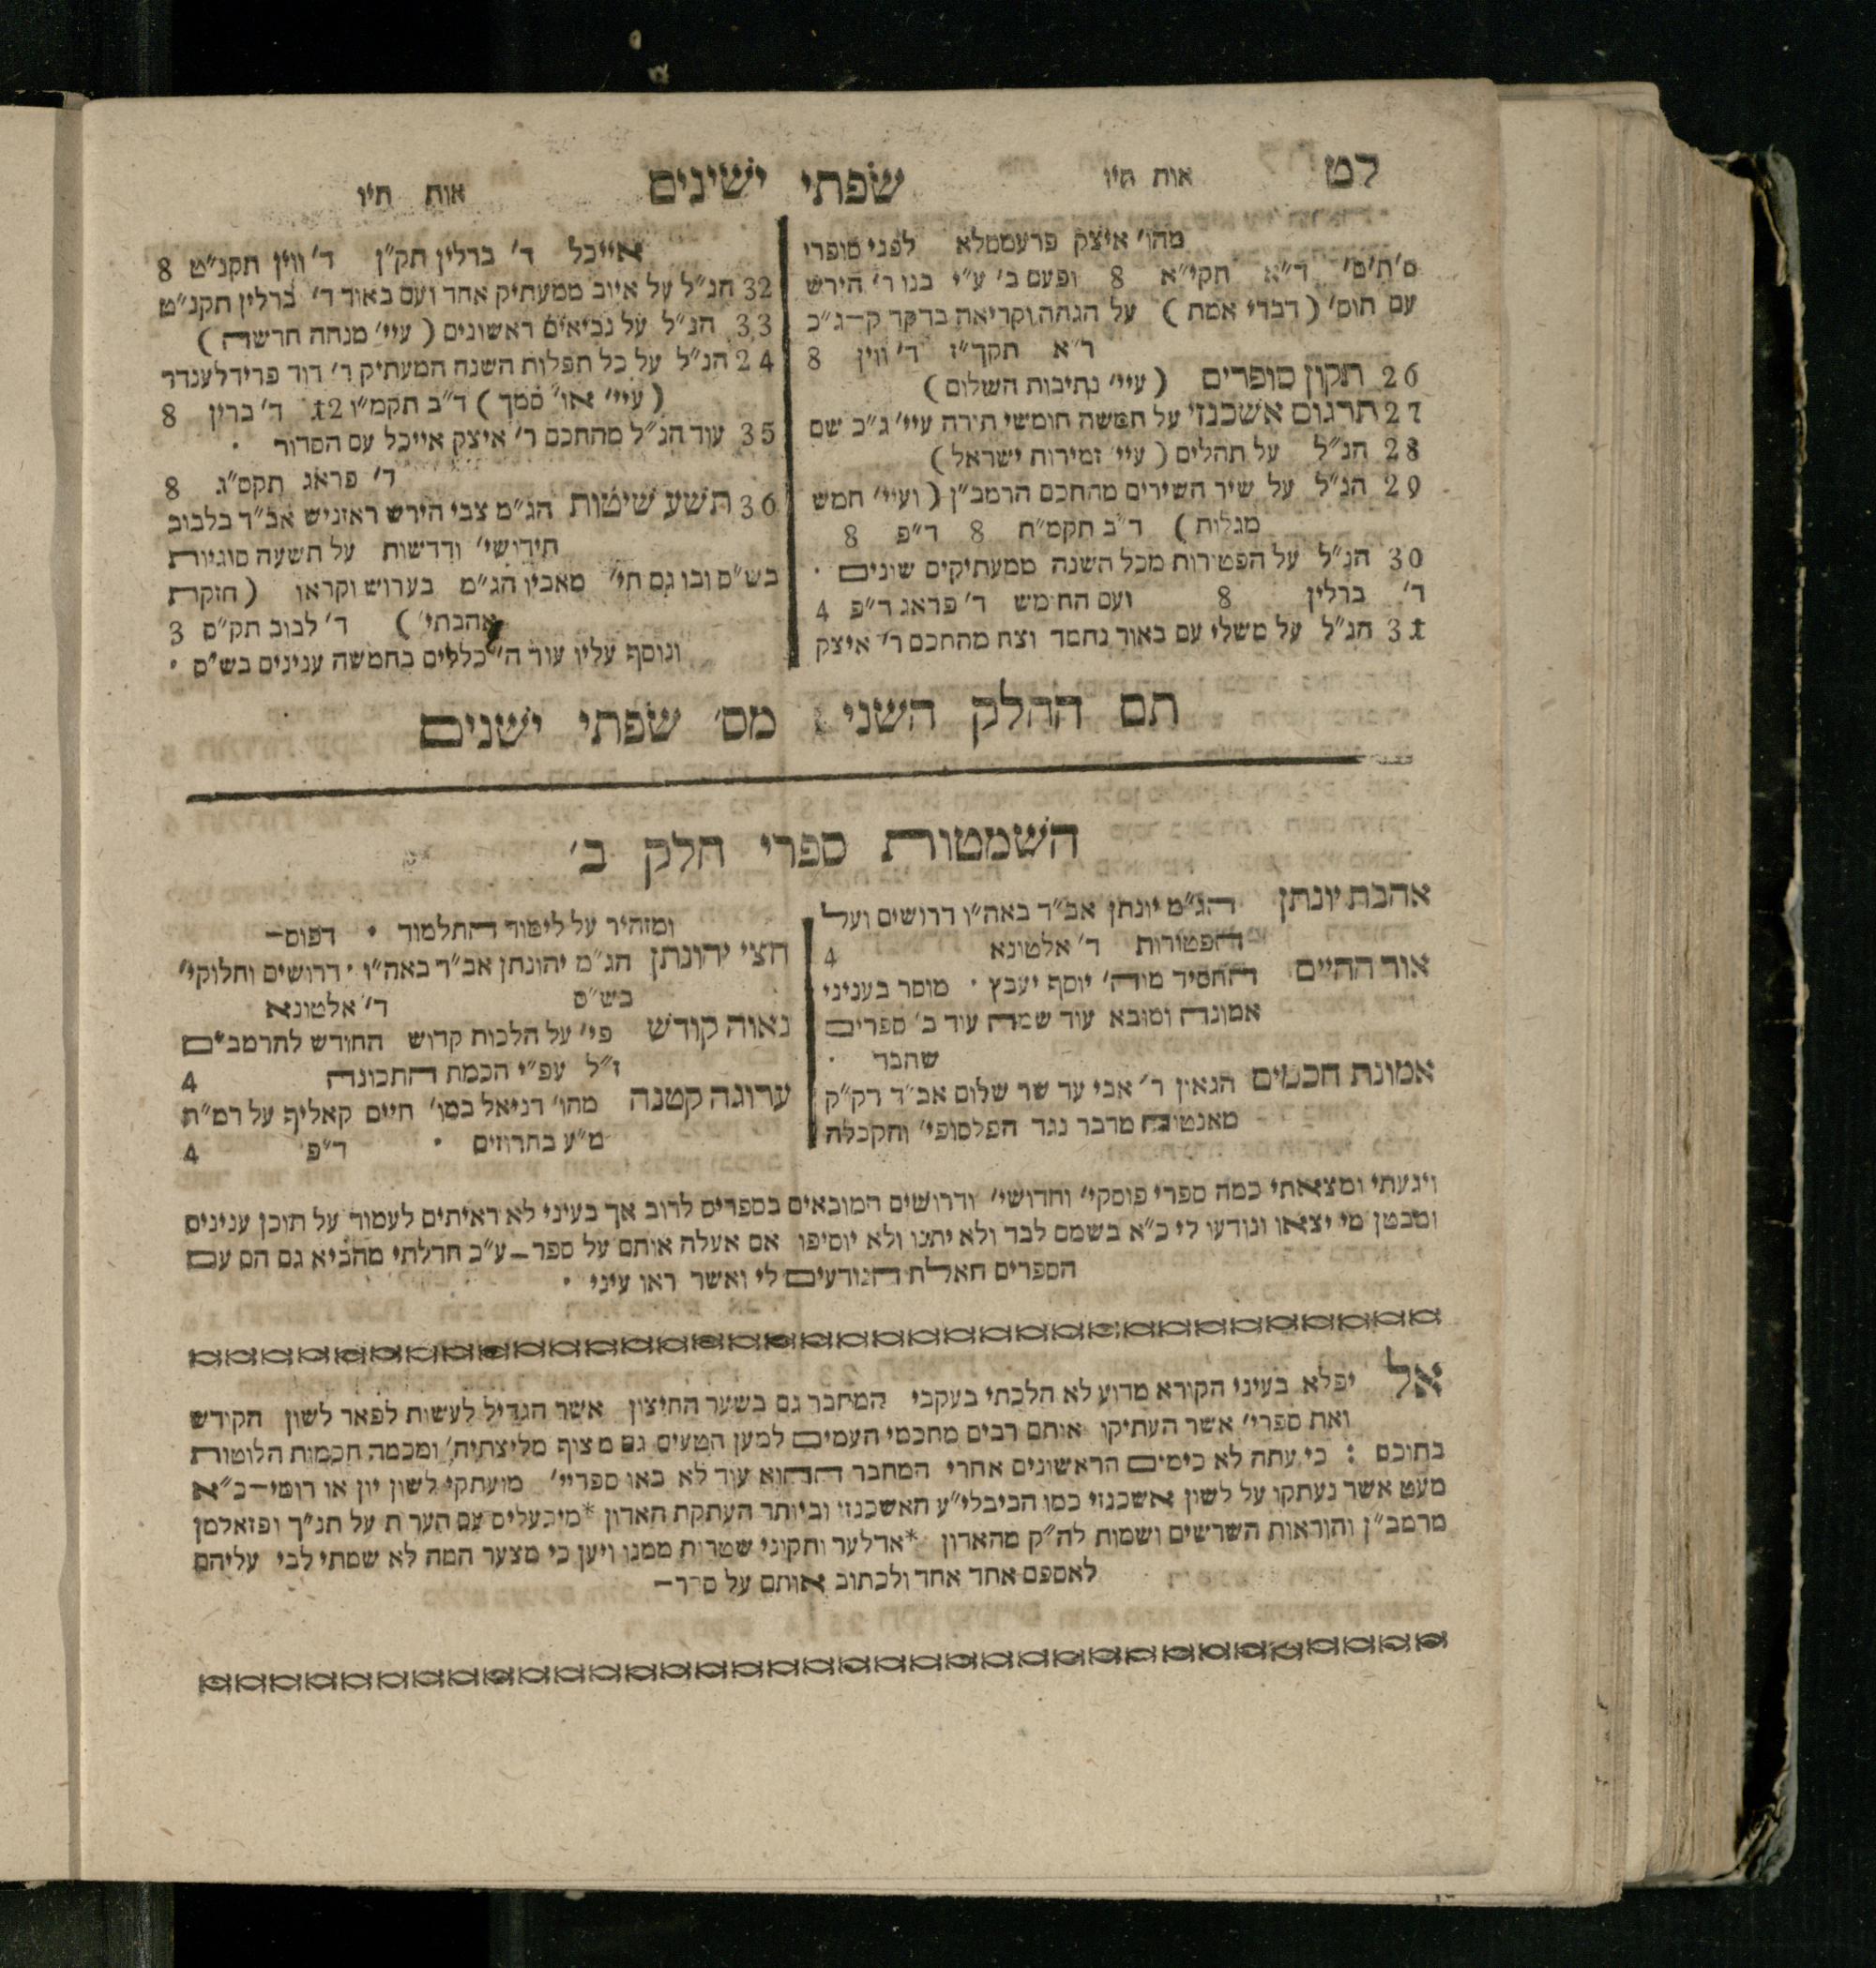 לט אות תיו שפתי ישינים אות תיו
מהו' איצק פרעמסלא לפני סופרי
ס'ת'ם' ד"א תקי"א 8 ופעם ב' ע"י בנו ר' הירש
עם תוס' (דברי אמת) על הגהה וקריאה בדקדק ק-ג"כ
ר"א תקך"ז ד' ווין 8
26 תקון סופרים (עיי' נתיבות השלום)
27 תרגום אשכנזי על חמשה חומשי תורה עיי' ג"כ שם
28 הנ"ל על תהלים (עיי' זמירות ישראל)
29 הנ"ל על שיר השירים מהחכם הרמב"ן (ועיי' חמש
מגלות) ד"ב תקמ"ח 8 ד"פ 8
30 הנ"ל על הפטירות מכל השנה ממעתיקים שונים •
ד' ברלין 8 ועם החומש ד' פראג ד"פ 4
31 הנ"ל על משלי עם באור נחמד וצח מהחכם ר' איצק
אייכל ד' ברלין תק"ן ד' ווין תקנ"ט 8
32 הנ"ל על איוב ממעתיק אחד ועם באור ד' ברלין תקנ"ט
33 הנ"ל על נביאים ראשונים (עיי' מנחה חדשה)
24 הנ"ל על כל תפלות השנה המעתיק ר' דוד פרידלענדר
(עיי' או' סמך) ד"ב תקמ"ו 12 ד' ברין 8
35 עוד הנ"ל מהחכם ר' איצק אייכל עם הסדור •
ד' פראג תקס"ג 8
36 תשע שיטות הג"מ צבי הירש ראזניש אב"ד בלבוב
חידושי' ודרשות על תשעה סוגיות
בש"ס ובו גם חי' מאביו הג"מ בערוש וקראו (חזקת
אהבתי') ד' לבוב תק"ס 3
ונוסף עליו עוד ה' כללים בחמשה ענינים בש"ס •
תם החלק השני מס' שפתי ישנים
השמטות ספרי חלק ב'
אהבת יונתן הג"מ יונתן אב"ד באה"ו דרושים ועל
הפטירות ד' אלטונא 4
אור החיים החסיד מוה' יוסף יעבץ • מוסר בעניני
אמונה ומובא עוד שמה עוד ב' ספרים
שחבר •
אמונת חכמים הגאין ר' אבי עד שר שלום אב"ד דק"ק
מאנטובה מדבר נגד הפלסופי' והקבלה
ומזהיר על לימוד התלמוד • דפוס-
חצי יהונתן הג"מ יהונתן אב"ד באה"ו • דרושים וחלוקי'
בש"ס ד' אלטונא
נאוה קודש פי' על הלכות קדוש החודש להרמב"ם
ז"ל עפ"י הכמת התכונה 4
ערוגה קטנה מהו' דניאל במו' חיים קאליף על רמ"ח
מ"ע בחרוזים • ד"פ 4
ויגעתי ומצאתי כמה ספרי פוסקי' וחדושי' ודרושים המובאים בספרים לרוב אך בעיני לא ראיתים לעמוד על תוכן ענינים
ומבטן מי יצאו ונודעו לי כ"א בשמם לבד ולא יתנו ולא יוסיפו אם אעלה אותם על ספר - ע"כ חדלתי מהביא גם הם עם
הספרים האלה הנודעים לי ואשר ראו עיני •
אל יפלא בעיני הקורא מדוע לא הלכתי בעקבי המחבר גם בשער החיצון אשר הגדיל לעשות לפאר לשון הקודש
ואת ספרי' אשר העתיקו אותם רבים מחכמי העמים למען הטעים גם מצוף מליצתיה' ומכמה חכמות הלוטות
בתוכם : כי עתה לא כימים הראשונים אחרי המחבר ההוא עוד לא באו ספריי' מועתקי' לשון יון או רומי-כ"א
מעט אשר נעתקו על לשון אשכנזי כמו הביבלי"ע האשכנזי וביותר העתקת האדון *מיכעליס עם הערת על תנ"ך ופזאלמן
מרמב"ן והוראות השרשים ושמות לה"ק מהאדון *אדלער ותקוני שטרות ממנו ויען כי מצער המה לא שמתי לבי עליהם
לאספם אחד אחד ולכתוב אותם על ספר-